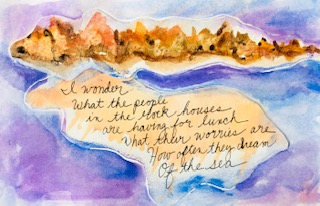 I wonder
What the people
in the rock houses
are having for lunch
What their worries are
How often they dream
Of the sea